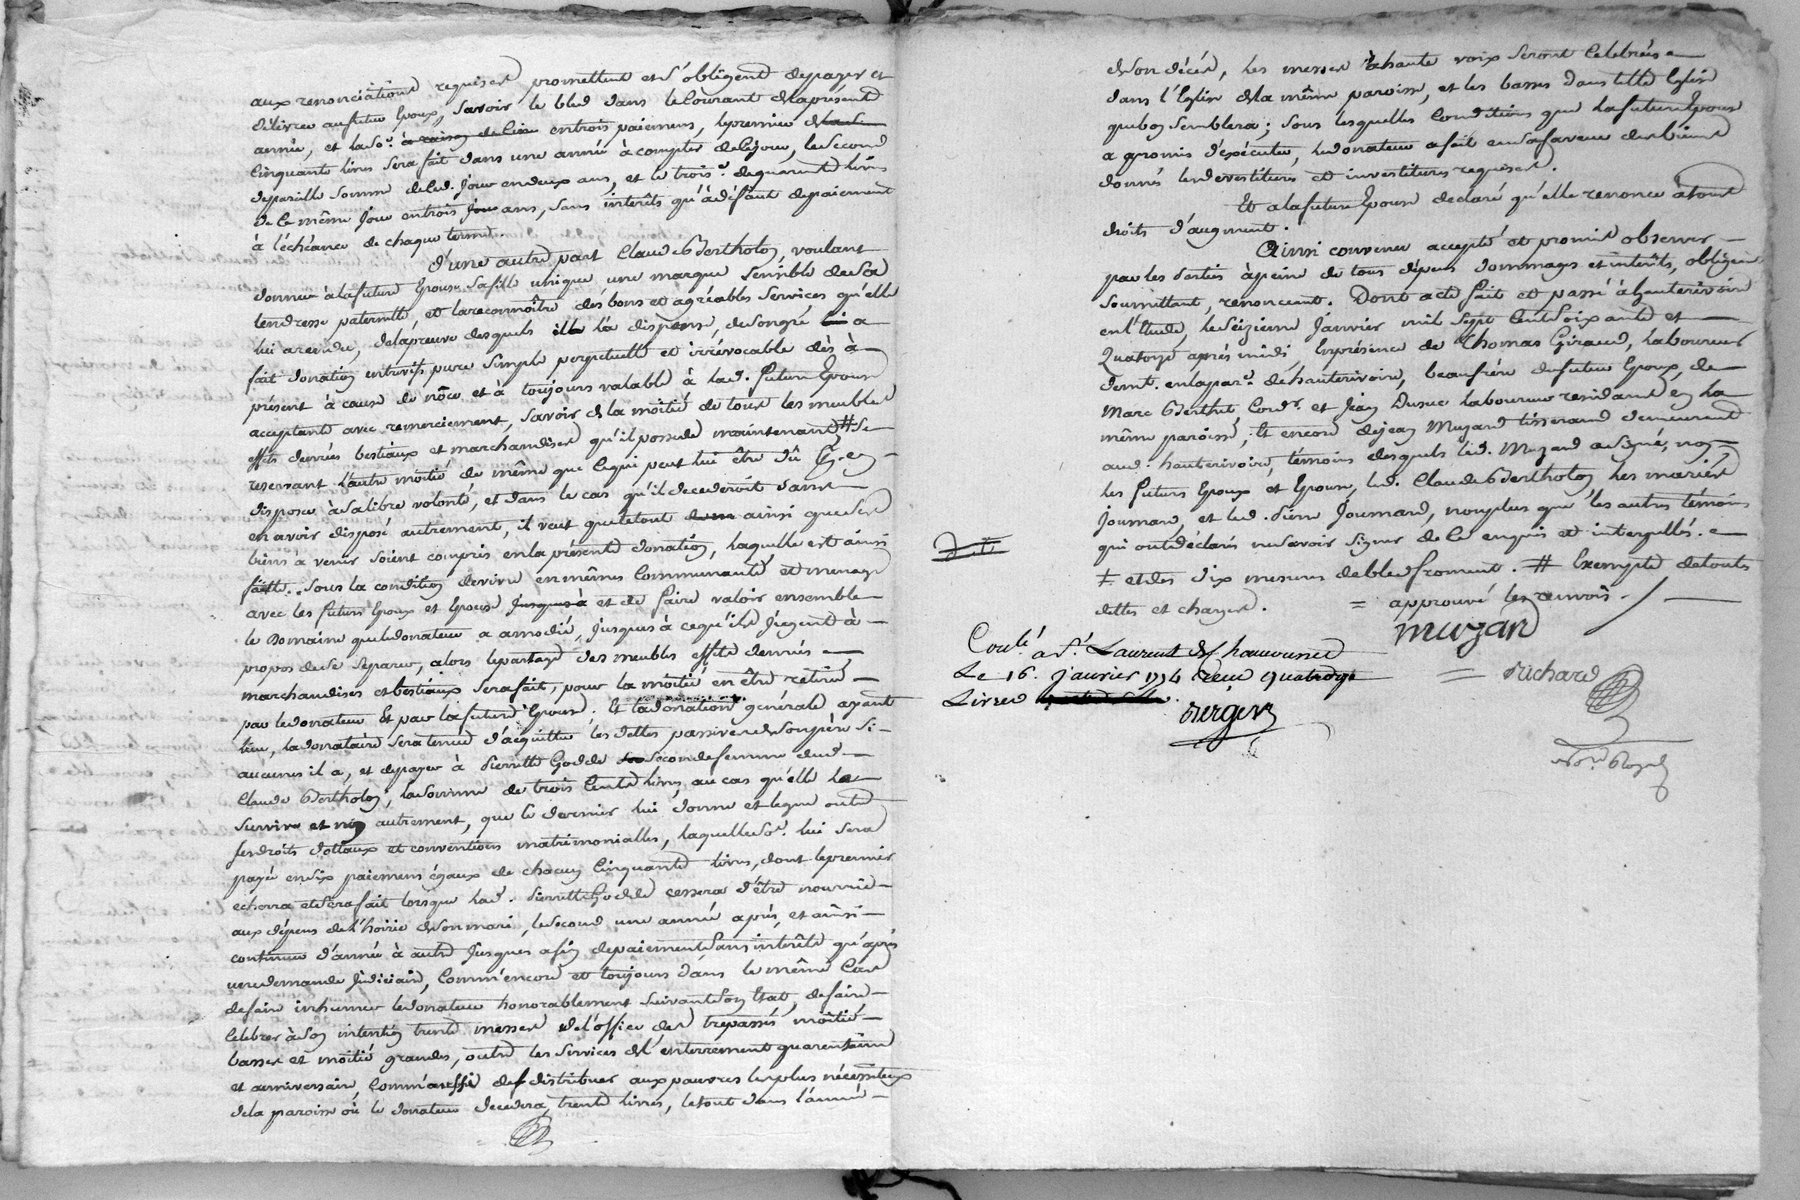 aux renonciations requises promettent et s'obligent de payer et
délivrer au futur Epoux, savoir le bled dans le courant de la présente
année, et la so.e à raison de cinq en trois paiemens, le premier de
cinquante livres sera fait dans une année à compter de ce jour, le second
de pareille somme dud. jour en deux ans, et le trois.e de quarante livres
de ce même jour en trois jour ans, sans intérêts qu'à défaut de paiement
à l'échéance de chaque terme.
D'une autre part Claude Bertholon, voulant
donner à la future Epouse sa fille unique une marque sensible de sa
tendresse paternelle, et la reconnoître des bons et agréables services qu'elle
lui a rendu, de la preuve desquels il l'a dispense, de son gré lui a
fait donation entrevifs pure simple perpetuelle et irrévocable dès à
présent à cause de nôce et à toujours valable à lad. future Epouse
acceptante avec remerciement, savoir de la moitié de tous les meubles
effets denrées bestiaux et marchandises qu'il possede maintenant # se
reservant l'autre moitié de même que ce qui peut lui être dû
disposer à sa libre volonté, et dans le cas qu'il decederoit sans
en avoir disposé autrement, il veut que le tout ainsi que ses
biens à venir soient compris en la présente donation, laquelle est ainsi
faite. sous la condition de vivre en mêmes communauté et menage
avec les futurs Epoux et Epouse jusques à et de faire valoir ensemble
le Domaine que le donateur a amodié, jusques à ce qu'ils jugent à
propos de se séparer, alors le partage des meubles effets denrées
marchandises et bestiaux sera fait, pour la moitié en être retirée
par le donateur Et par la future Epouse. Et la donation générale ayant
lieu, la donataire sera tenue d'acquitter les dettes passives de son père si
aucunes il a, et de payer à Pierrette Godde sa seconde femme dud.
Claude Bertholon, la somme de trois cents livres, au cas qu'elle le
survive et non autrement, que le dernier lui donne et legue outre
ses droits dottaux et conventions matrimonialles, laquelle so.e lui sera
payée en six paiemens égaux de chacun cinquante livres, dont le premier
echerra et sera fait lorsque lad. Pierrette Godde cessera d'être nourrie
aux dépens de l'hoirie de son mari, le second une année après, et ainsi
continuer d'année à autre jusques a fin de paiement sans intérêts qu'après
une demande judiciaire, comm'encore et toujours dans le même cas
de faire inhumer le donateur honorablement suivant son Etat, de faire
celebrer à son intention trente messes de l'office des trepassés moitié
basses et moitié grandes, outre les services de l'enterrement quarentaine
et anniversaire comm'aussi de distribuer aux pauvres les plus nécessiteux
de la paroisse où le donateur decedera, trente livres, le tout dans l'année
de son décès, les messes à haute voix seront celebrées
dans l'Eglise de la même paroisse, et les basses dans telle Eglise
que bon semblera; sous lesquelles conditions que la future Epouse
a promis d'exécuter, le donateur a fait en sa faveur des biens
donnés les devestitures et investitures requises.
Et a la future Epouse declaré qu'elle renonce à tout
droits d'augment.
Ainsi convenu accepté et promis observer
par les parties à peine de tous dépens dommages et intérêts, obligeant
soumettant, renonceant. Dont acte fait et passé à hauterivoire
en l'Etude, le seizieme Janvier mil sept cent soixante et
Quatorze après midi, En présence de Thomas Giraud, laboureur
demt. en la par.e de hauterivoire, beaufrère du futur Epoux, de
Marc Berthet, Cord.r et Jean Dusuc laboureur residant en la
même paroisse, Et encore de jean Muzard tisserand demeurant
aud. hauterivoire, témoins desquels led. Muzard a signé, non
les futurs Epoux et Epouse, led. Claude Bertholon, les mariés
Joumard, et led. Pierre Joumard, non plus que les autres témoins
qui ont déclaré ne savoir signer de ce enquis et interpellés.
‡ et des dix mesures de bled froment. # Exempte de toutes
dettes et charges. = approuvé les renvois.
muzard
Conlé à S.t Laurent de Chamousset
Le 16. janvier 1774 Reçu Quatorze
Livres
Richard
Not.e Royal